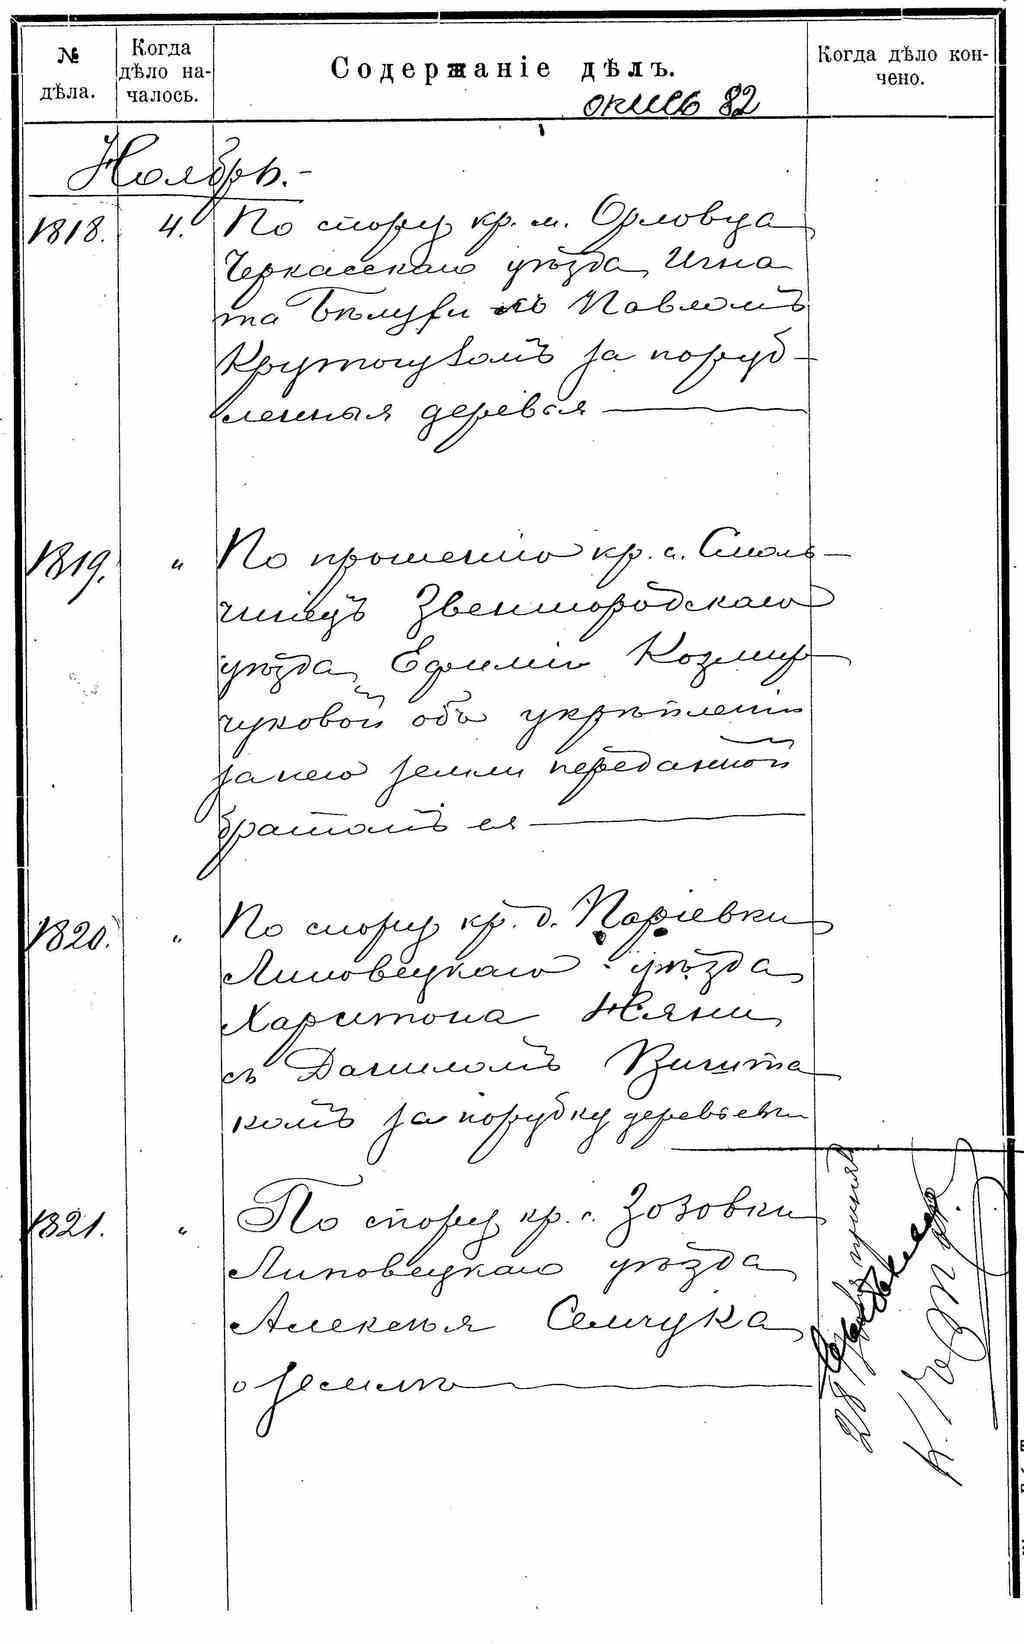 № дѣла.
Когда дѣло на-
чалось.
Содержаніе дѣлъ.
Когда дѣло кон-
чено.
опись 82
Ноябрь.-
1818. 4. По спору кр. м. Орловца
Черкасскаго уѣзда Игна
та Бѣлухи съ Павломъ
за поруб-
ленныя деревья
1819. " По прошенію кр. с. Смоль-
чинецъ Звенигородскаго
уѣзда Ефиміи Козмир-
чуковой объ укрѣпленіи
за нею земли переданной
братомъ ея
1820. " По спору кр. д. Паріевки
Липовецкаго уѣзда
Харитона
съ Даниломъ
комъ за порубку деревьевъ
1821. " По спору кр. с. Зозовки
Липовецкаго уѣзда
Алексѣя Семчука
о землѣ
28